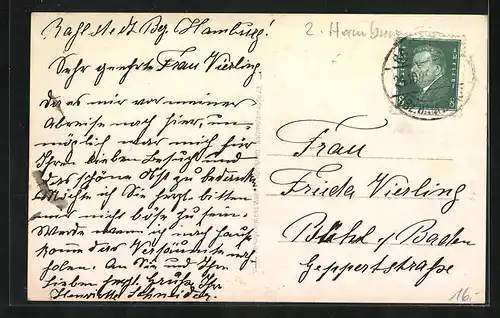 Rahlstedt Bez. Hamburg!
Sehr geehrte Frau Vierling
Da es mir vor meiner
Abreise nach hier, un-
möglich war mich für
Ihren lieben Besuch und
das schöne Obst zu bedanken
Möchte ich Sie herzl. bitten
mir nicht böse zu sein.
Werde wenn ich nach Hause
komme das Versäumte nach-
holen. An Sie und Ihre
Lieben herzl. Grüße Ihre
Henriette Schneider.
2. Hamburg
Frau
Frieda Vierling
Bühl / Baden
Geppertstraße
16.-